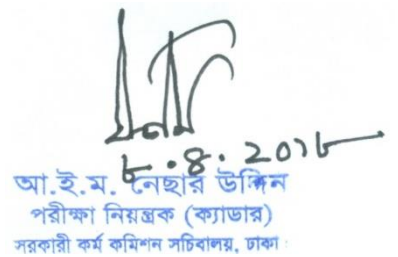 ৮.৪.২০১৮
আ.ই.ম. নেছার উদ্দিন
পরীক্ষা নিয়ন্ত্রক (ক্যাডার)
সরকারী কর্ম কমিশন সচিবালয়, ঢাকা